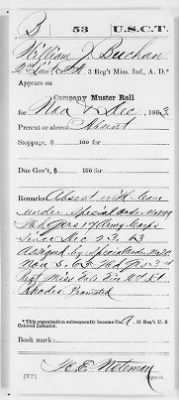 B 53 U.S.C.T.
William J. Buchan
2d Lieut, Co. A, 3 Reg't Miss. Inf., A. D.*
Appears on
Company Muster Roll
for Nov & Dec, 1863.
Present or absent Absent
Stoppage, $ 100 for
Due Gov't, $ 100 for
Remarks: Absent with leave
under Special order
Hd Qrs 17 Army Corps
Since Dec 23, 63
Assigned by Special order No
Nov 5, 63 Hd Qrs
Regt Miss Vols
Rhodes Promoted
*This organization subsequently became Co. A, 53 Reg't U. S.
Colored Infantry.
Book mark:
Copyist.